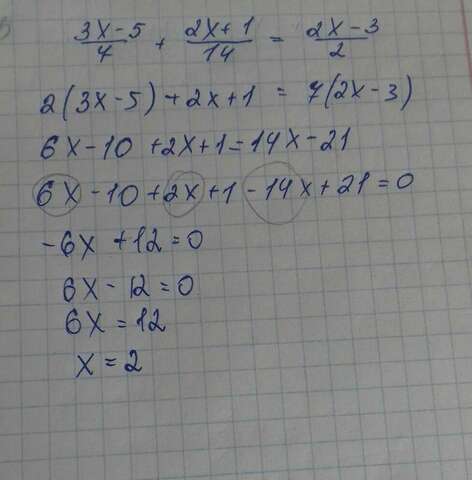 (3x-5)/7 + (2x+1)/14 = (2x-3)/2
2(3x-5)+2x+1 = 7(2x-3)
6x-10+2x+1=14x-21
6x-10+2x+1-14x+21=0
-6x+12=0
6x-12=0
6x=12
x=2